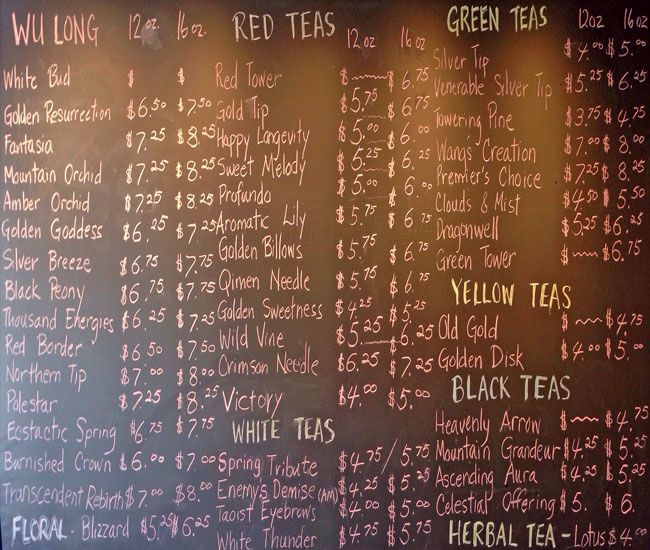 WU LONG 12 oz 16 oz.
White Bud $ $
Golden Resurrection $6.50 $7.50
Fantasia $7.25 $8.25
Mountain Orchid $7.25 $8.25
Amber Orchid $7.25 $8.25
Golden Goddess $6.25 $7.25
Silver Breeze $6.75 $7.75
Black Peony $6.75 $7.75
Thousand Energies $6.25 $7.25
Red Border $6.50 $7.50
Northern Tip $7.00 $8.00
Polestar $7.25 $8.25
Ecstactic Spring $6.75 $7.75
Burnished Crown $6.00 $7.00
Transcendent Rebirth $7.00 $8.00
FLORAL - Blizzard $5.25 $6.25
RED TEAS 12 oz 16 oz
Red Tower $ ~~~ $6.75
Gold Tip $5.75 $6.75
Happy Longevity $5.00 $6.00
Sweet Melody $5.25 $6.25
Profundo $5.00 $6.00
Aromatic Lily $5.75 $6.75
Golden Billows $5.75 $6.75
Qimen Needle $5.75 $6.75
Golden Sweetness $4.25 $5.25
Wild Vine $5.25 $6.25
Crimson Needle $6.25 $7.25
Victory $4.00 $5.00
WHITE TEAS
Spring Tribute $4.75 / $5.75
Enemy's Demise (AM) $4.25 $5.25
Taoist Eyebrows $4.00 $5.00
White Thunder $4.75 $5.75
GREEN TEAS 12oz 16 oz
Silver Tip $4.00 $5.00
Venerable Silver Tip $5.25 $6.25
Towering Pine $3.75 $4.75
Wangs' Creation $7.00 $8.00
Premier's Choice $7.25 $8.25
Clouds & Mist $4.50 $5.50
Dragonwell $5.25 $6.25
Green Tower $ ~~~ $6.75
YELLOW TEAS
Old Gold $ ~~~ $4.75
Golden Disk $4.00 $5.00
BLACK TEAS
Heavenly Arrow $ ~~~ $4.75
Mountain Grandeur $4.25 $5.25
Ascending Aura $4.25 $5.25
Celestial Offering $5. $6.
HERBAL TEA - Lotus $4.00